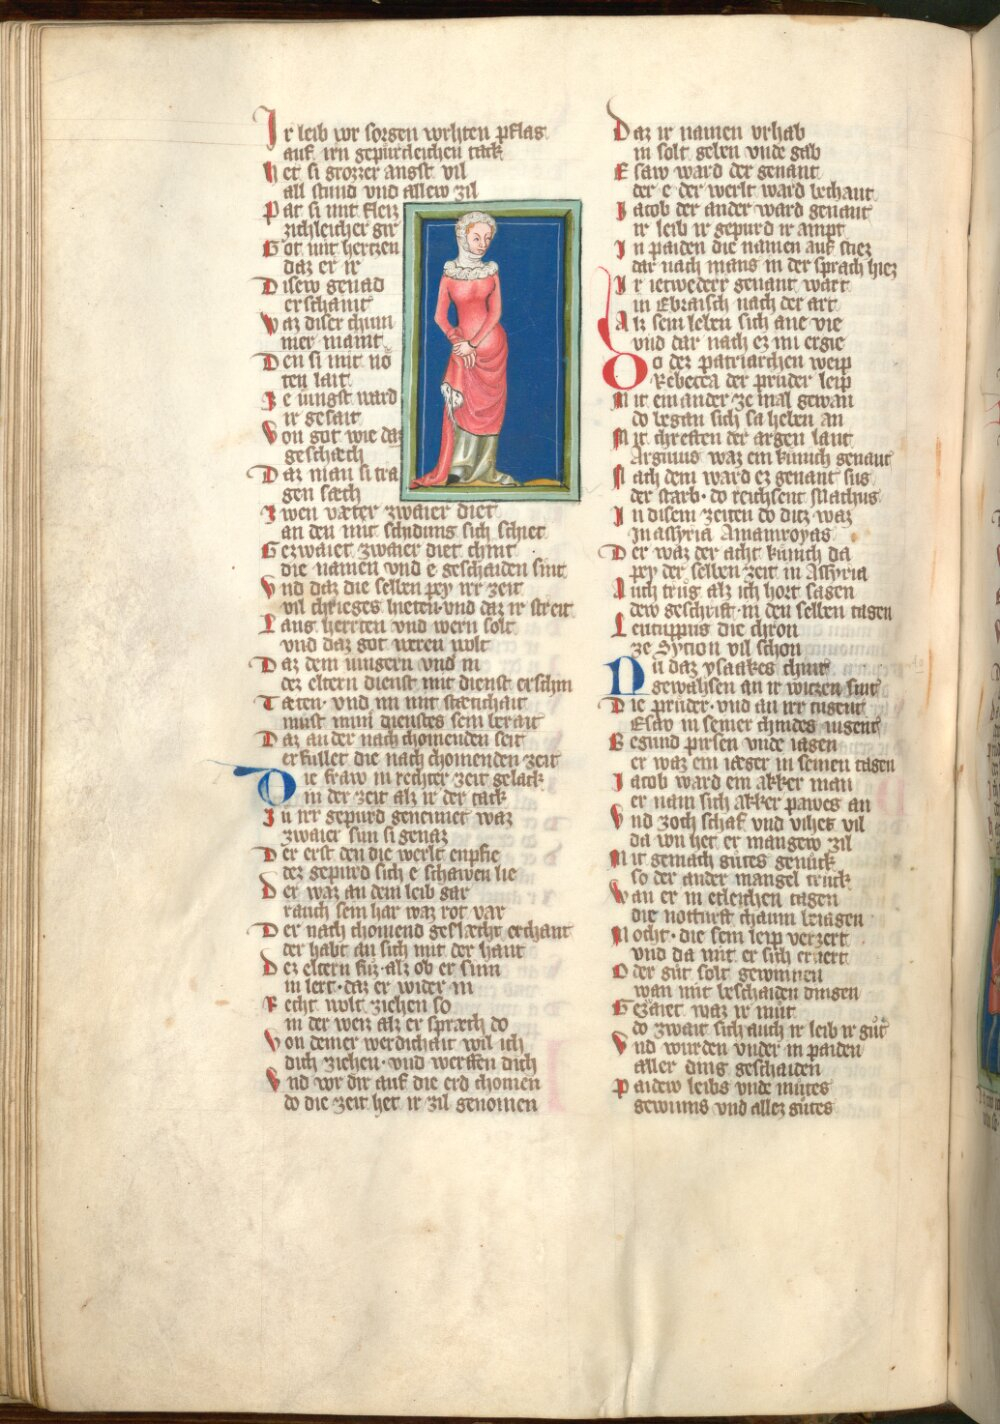 Ir leib vor sorgen vorhten pflag
auf irn gepurdleichen tack
Het si grozzer angst vil
all stund vnd allew zil
Pat si mit fleiz
zichleicher gir
Got mit hertzen
daz er ir
Disew genad
erschaint
Waz diser chum
mer maint
Den si mit nö
ten lait
Ie üngst ward
ir gesait
Von got wie daz
geschæch
Daz man si tra
gen sæch
Zwen væter zwaier diet
an den mit schidung sich schiet
Gezwaiet zwaier diet chint
die namen vnd e geschaiden sint
Vnd daz die selben pey irr zeit
vil chrieges hieten vnd daz ir streit
Lang herrten vnd wern solt
vnd daz got weren wolt
Daz dem iungern vnd in
dez eltern dienst mit dienst erschin
Tæten vnd im mit stætichait
must mim dienstes sein berait
Daz an der nach chomenden seit
erfullet die nach chomenden zeit
Die fraw in rechter zeit gelack
in der zeit alz ir der tack
Zu irr gepurd genennet waz
zwaier sun si genaz
Der erst den die werlt enpfie
dez gepurd sich e schawen lie
Der waz an dem leib gar
rauch sein har waz rot var
Der nach chomend geslæcht erchant
der habt an sich mit der hant
Dez eltern fuz alz ob er sinn
in lert daz er wider in
Recht wolt ziehen so
in der weiz alz er spræch do
Von deiner werdichait wil ich
dich ziehen vnd werffen dich
Vnd wir dir auf die erd chomen
do die zeit het ir zil genomen
Daz ir namen vrhab
in solt geben vnde gab
Esaw ward der genant
der e der werlt ward bechant
Iacob der ander ward genant
ir leib ir gepurd ir ampt
In paiden die namen auf stiez
dar nach mans in der sprach hiez
Ir ietweder genant wart
in Ebraisch nach der art
Alz sein leben sich ane vie
vnd dar nach ez im ergie
Do dez patriarchen weip
Rebecca der pruder leip
Mit einander ze mal gewan
do began sich sa heben an
Mit chreften der argen lant
Argiuus waz ein künich genant
Nach dem ward ez genant sus
der starb do reichsent Mathus
In disem zeiten do ditz waz
in assyria Amamroyas
Der waz der acht künich da
pey der selben zeit in Assyria
Auch trüg alz ich hort sagen
dew geschrift in den selben tagen
Leutippus die chron
ze Sycion vil schon
Nu daz ysaakes chint
gewahsen an ir wiczen sint
Die prüder vnd an irr tugent
Esaw in seiner chindes iugent
Begund pirsen vnde iagen
er waz ein iæger in seinen tagen
Iacob ward ein akker man
er nam sich akker pawes an
Vnd zoch schaf vnd vihes vil
da von het er mangew zil
Mit gemach gütes genück
so der ander mangel truck
Wan er in etleichen tagen
die notturft chaum beiagen
Mocht die sein leip verzert
vnd da mit er sich ernert
Oder güt solt gewinnen
wan mit beschaiden dingen
Gezwaiet waz ir müt
do zwait sich auch ir leib ir güt
Vnd wurden vnder in paiden
aller ding geschaiden
Paidew leibs vnde mütes
gewinns vnd allez gütes